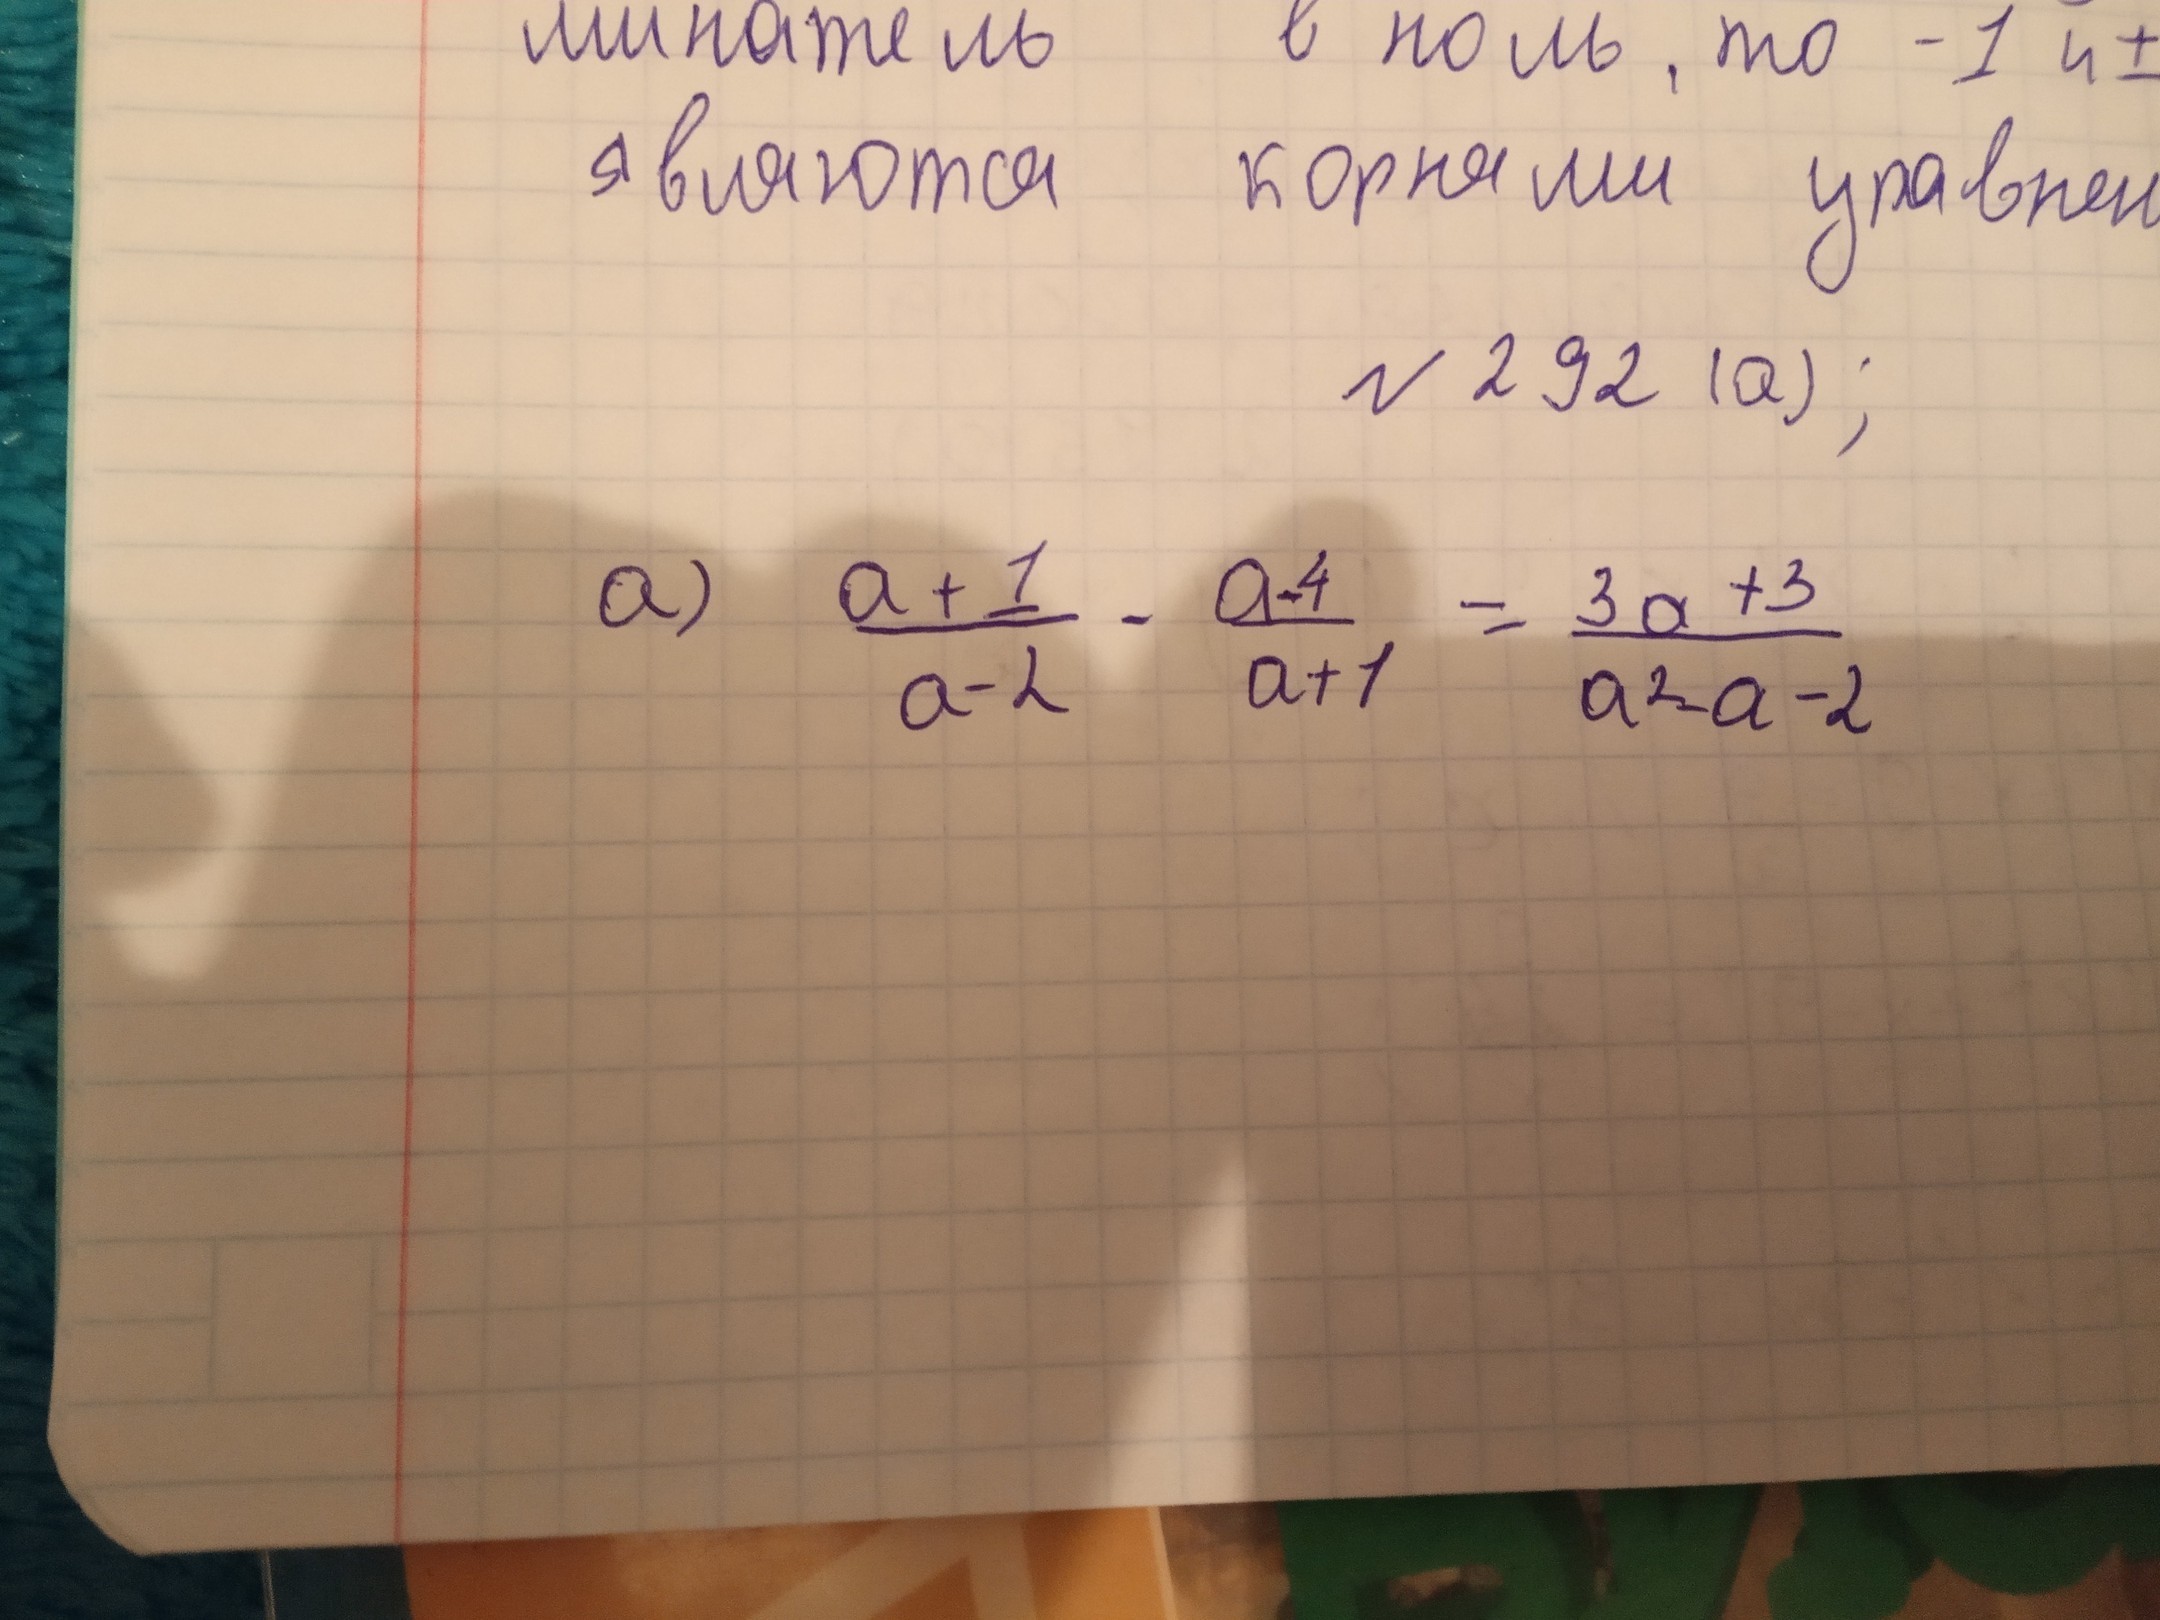 минатель в ноль, то -1 и ±
являются корнями уравнен
№ 292 (а);
а) \frac{a+1}{a-2} - \frac{a-4}{a+1} = \frac{3a+3}{a²-a-2}